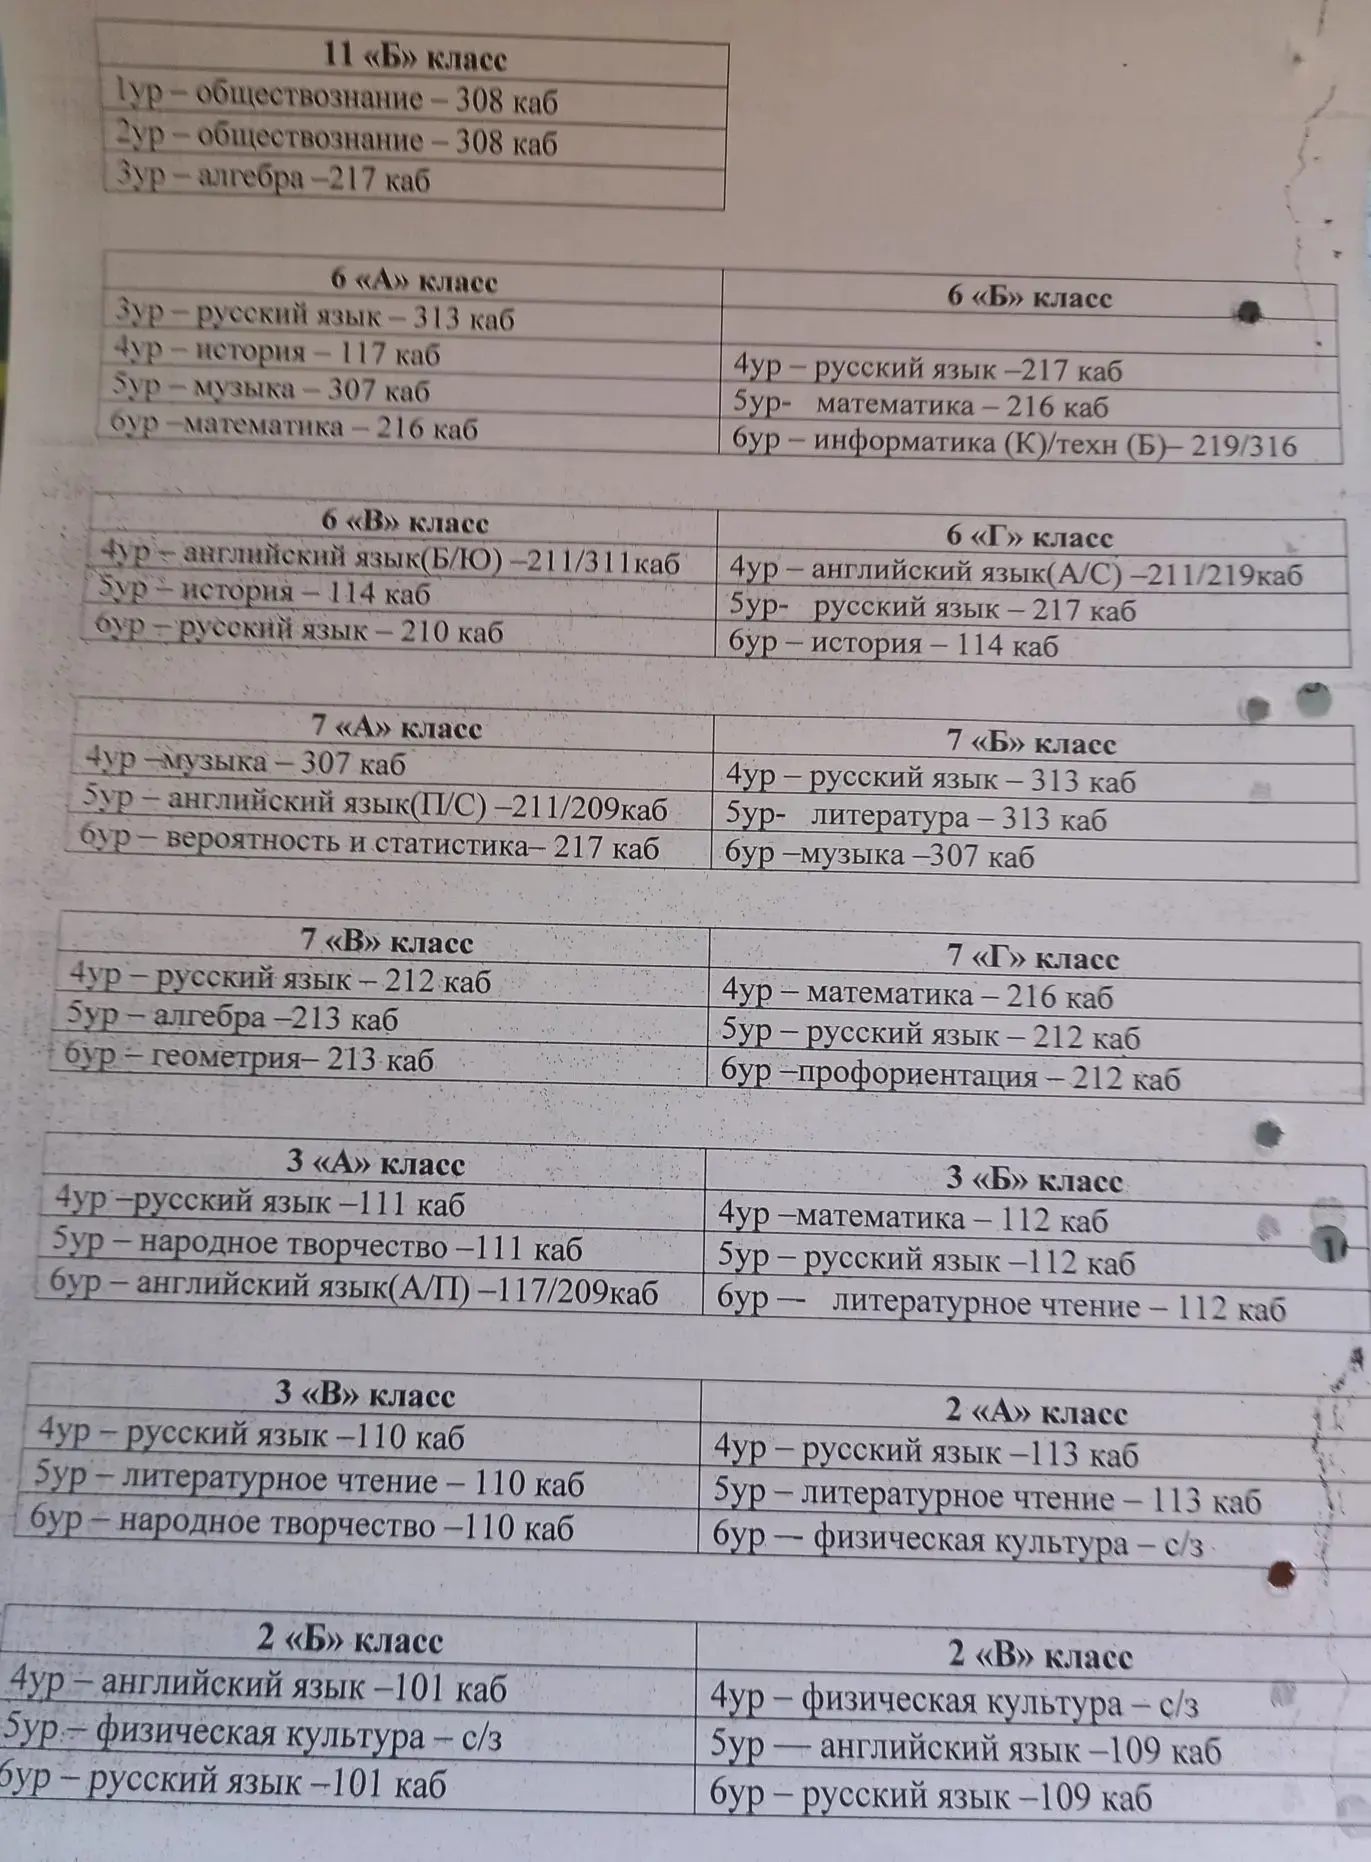 11 «Б» класс
1ур – обществознание – 308 каб
2ур – обществознание – 308 каб
3ур – алгебра –217 каб
6 «А» класс
3ур – русский язык – 313 каб
4ур – история – 117 каб
5ур – музыка – 307 каб
6ур –математика – 216 каб
6 «Б» класс
4ур – русский язык –217 каб
5ур- математика – 216 каб
6ур – информатика (К)/техн (Б)– 219/316
6 «В» класс
4ур – английский язык(Б/Ю) –211/311каб
5ур – история – 114 каб
6ур – русский язык – 210 каб
6 «Г» класс
4ур – английский язык(А/С) –211/219каб
5ур- русский язык – 217 каб
6ур – история – 114 каб
7 «А» класс
4ур –музыка – 307 каб
5ур – английский язык(П/С) –211/209каб
6ур – вероятность и статистика– 217 каб
7 «Б» класс
4ур – русский язык – 313 каб
5ур- литература – 313 каб
6ур –музыка –307 каб
7 «В» класс
4ур – русский язык – 212 каб
5ур – алгебра –213 каб
6ур – геометрия– 213 каб
7 «Г» класс
4ур – математика – 216 каб
5ур – русский язык – 212 каб
6ур –профориентация – 212 каб
3 «А» класс
4ур –русский язык –111 каб
5ур – народное творчество –111 каб
6ур – английский язык(А/П) –117/209каб
3 «Б» класс
4ур –математика – 112 каб
5ур – русский язык –112 каб
6ур –- литературное чтение – 112 каб
3 «В» класс
4ур – русский язык –110 каб
5ур – литературное чтение – 110 каб
6ур – народное творчество –110 каб
2 «А» класс
4ур – русский язык –113 каб
5ур – литературное чтение – 113 каб
6ур –- физическая культура – с/з
2 «Б» класс
4ур – английский язык –101 каб
5ур – физическая культура – с/з
6ур – русский язык –101 каб
2 «В» класс
4ур – физическая культура – с/з
5ур –– английский язык –109 каб
6ур – русский язык –109 каб